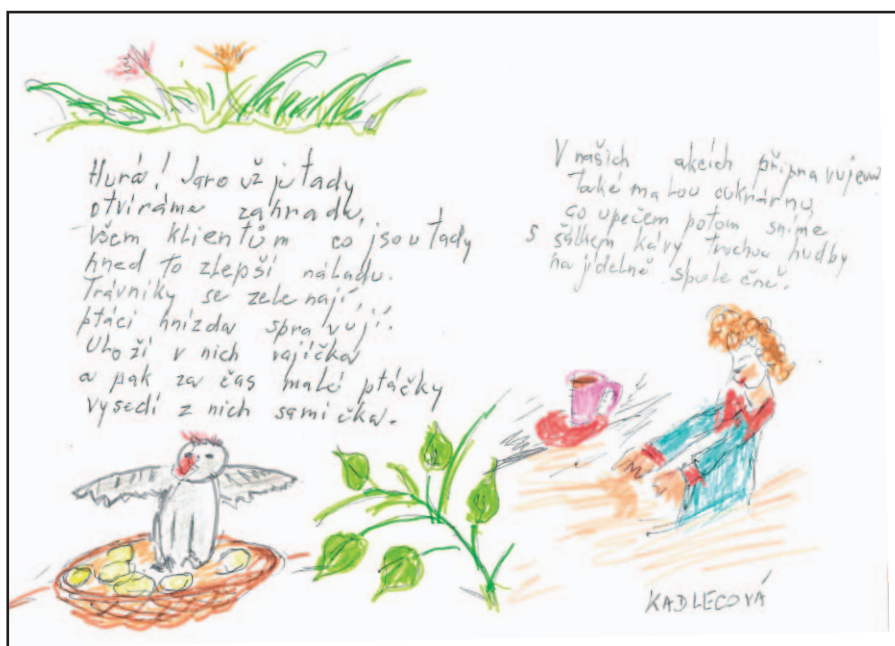 Hurá! Jaro už je tady
otvíráme zahradu,
všem klientům co jsou tady
hned to zlepší náladu.
Trávníky se zelenají,
ptáci hnízda spravují.
Uloží v nich vajíčka
a pak za čas malé ptáčky
vysedí z nich samička.
V našich akcích připravujem
také malou cukrárnu,
co upečem potom sníme
s šálkem kávy trochou hudby
na jídelně společně.
KADLECOVÁ